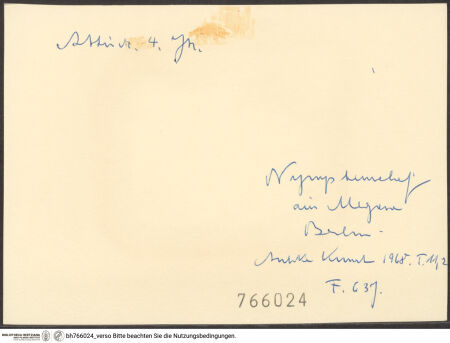 Attisch. 4. Jh.
Nymphenrelief
aus Megara
Berlin
Antike Kunst 1968. T. 11,2
766024
BIBLIOTHECA HERTZIANA bh766024_verso Bitte beachten Sie die Nutzungsbedingungen.